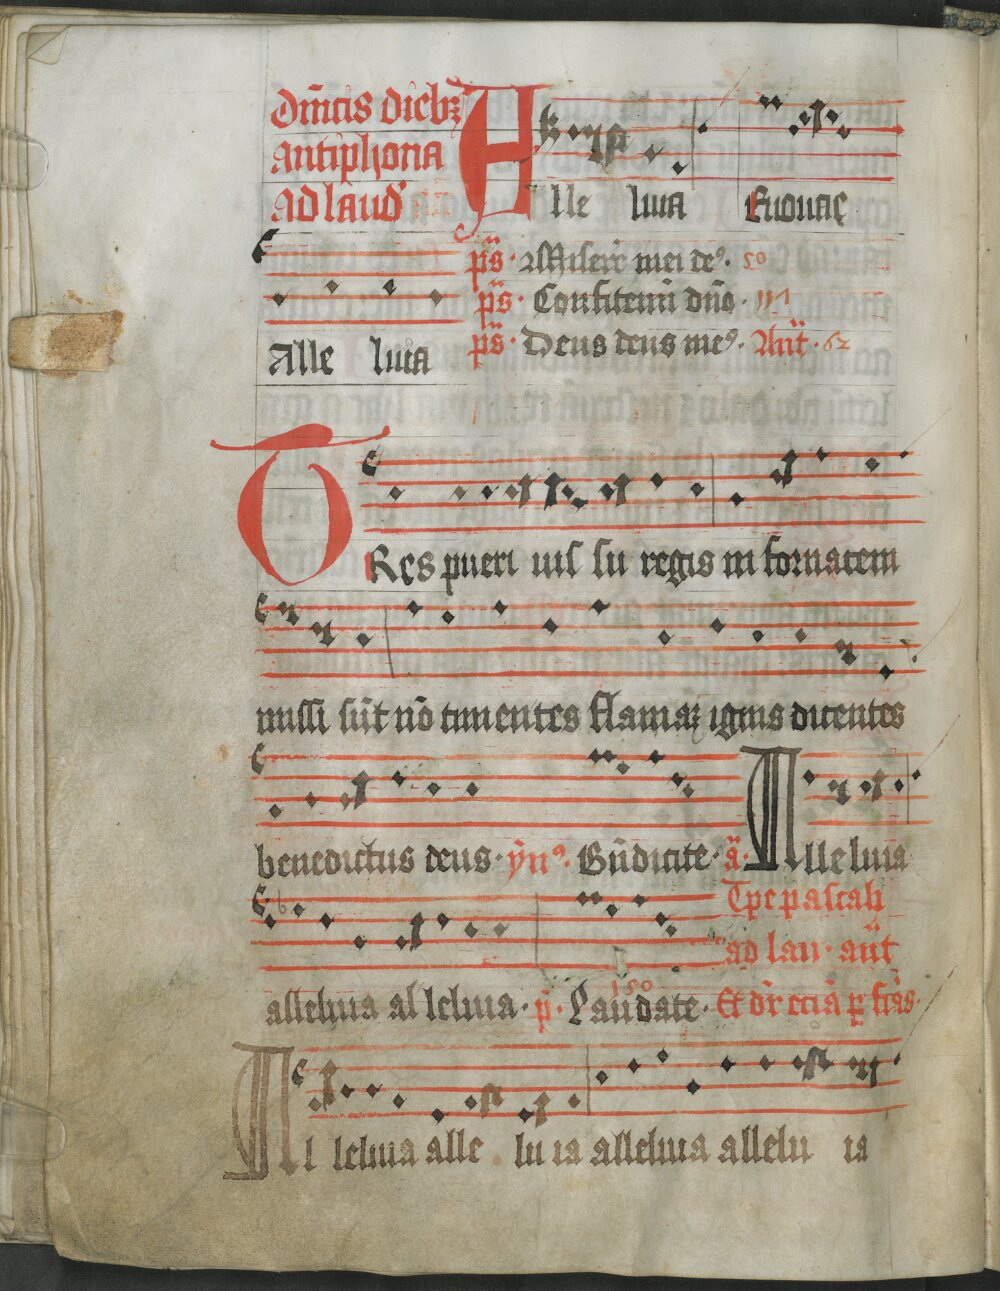 Dn̄icis Diebꝫ
antiphona
ad laud'
Alle luia Euouae
p̄s. Miserr̄ mei deꝰ. 50
p̄s. Confitemī dn̄o.
Alle luia
p̄s. Deus deus meꝰ. Ant̄. 62
TRes pueri uis su regis in fornacem
missi sūt nō timentes flamaꝫ ignis dicentes
benedictus deus. ym̄ꝰ. Bn̄dicite. ā. Alleluia
Tp̄e pascali
ad lau. ant̄
alleluia al leluia. p̄. Laudate. 150 Et dr̄ eciā ꝑ fr̄as.
Al leluia alle lu ia alleluia allelu ia